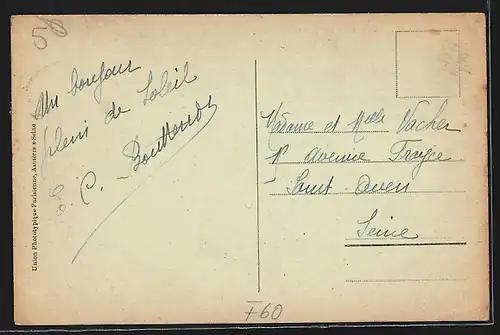 50
Un bonjour
plein de Soleil
C.
Union Phototypique Parisienne, Asnières s Seine
Madame et Melle Vacher
Avenue
Saint-Ouen
Seine
F60